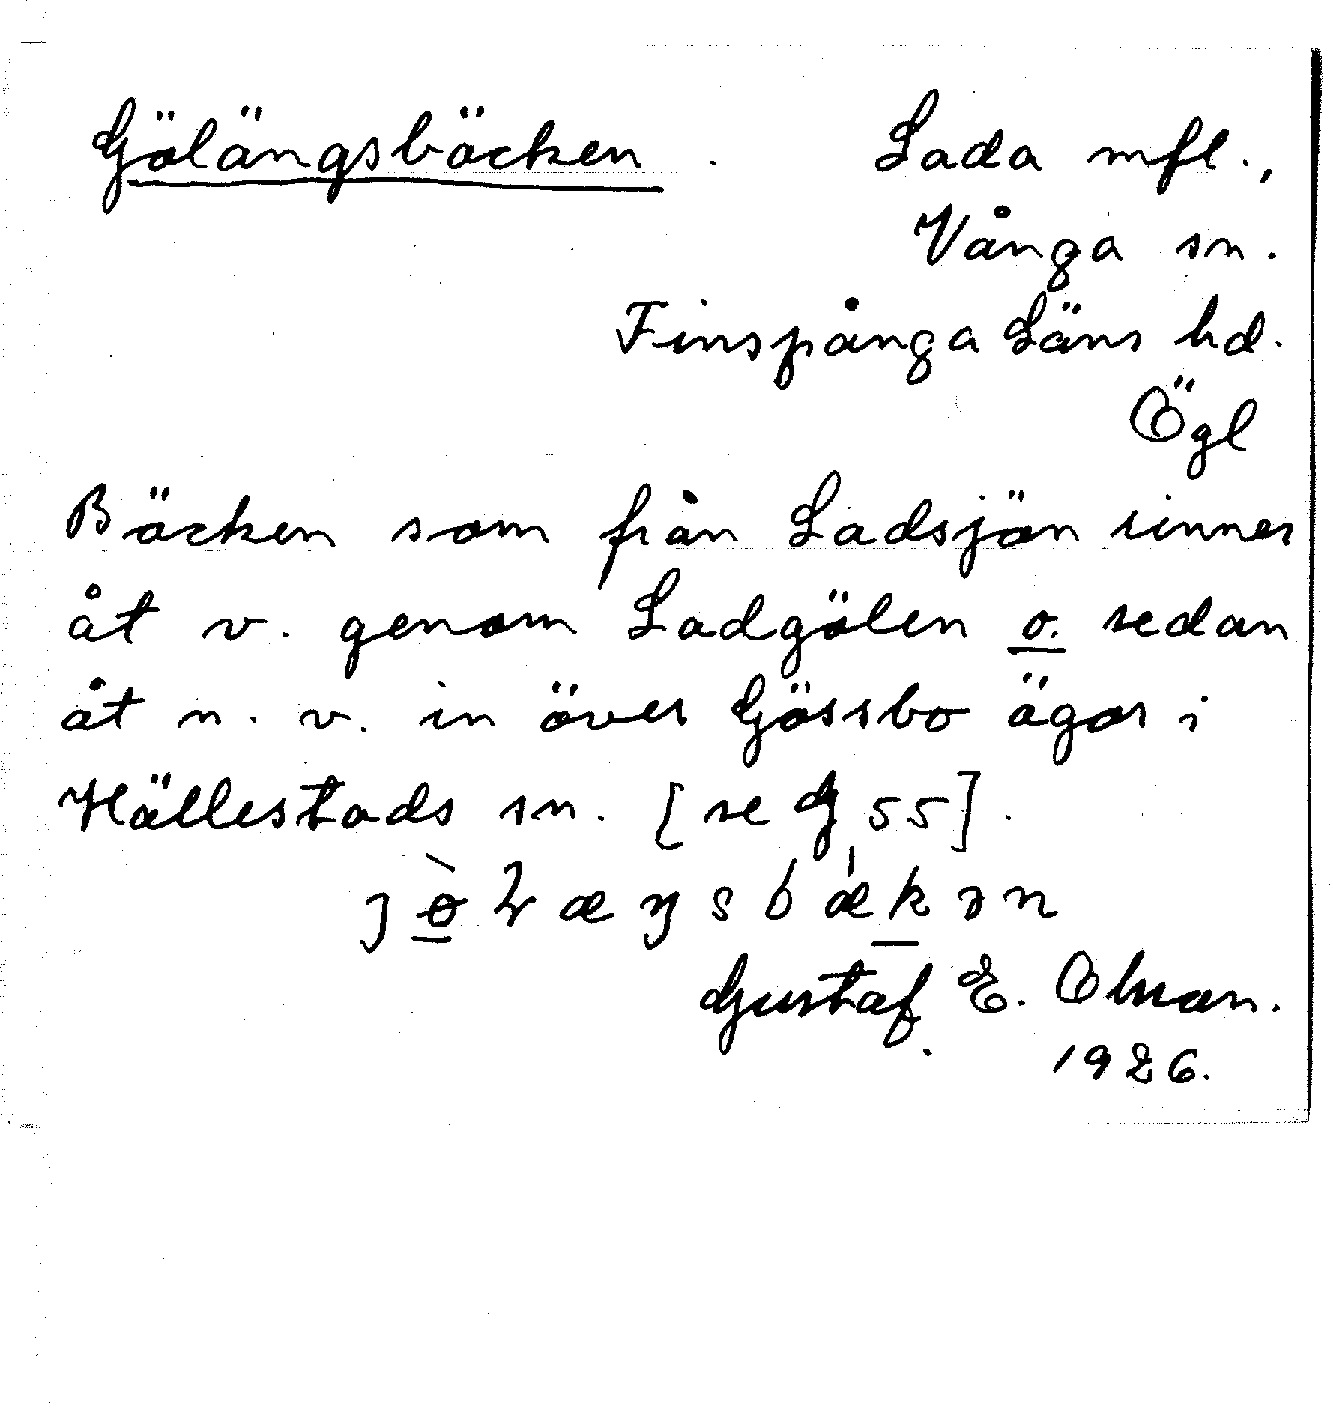 Gölängsbäcken. Lada mfl.,
Vånga sn.
Finspånga Läns hd.
Ögl
Bäcken som från Ladsjön rinner
åt v. genom Ladgölen o. sedan
åt n. v. in över Gössbo ägor i
Hällestads sn. [se G 55].
Gustaf E. Olsson.
1926.